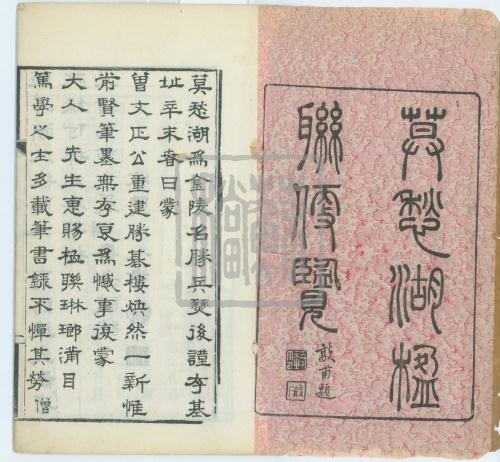 莫愁湖楹
聯便覽
甫題
莫愁湖爲金陵名勝兵燹後謹存基
址辛未春日蒙
曾文正公重建勝碁樓煥然一新惟
前賢筆墨無存良爲憾事復蒙
大人 先生惠賜楹聯琳瑯滿目
篤學之士多載筆書錄不憚其勞僧